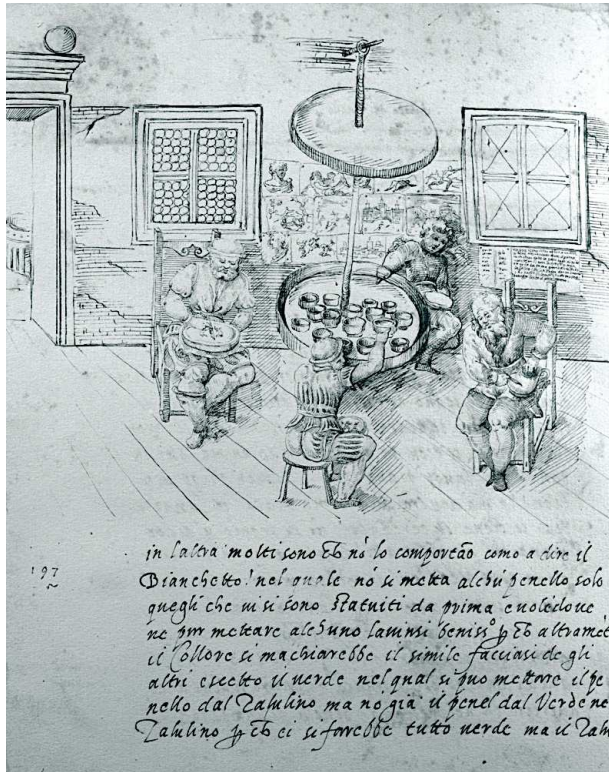 in laltra molti sono che nō lo comportāo como a dire il
197
Bianchetto! nel quale nō si metta alchū penello solo
quegli che ui si sono statuiti da prima e uolēdoue
ne pur mettare alchuno lauinsi beniss° che altramēt
il Collore si machiarebbe il simile facciasi de gli
altri eccetto il uerde nel qual si puo mettare il pe
nello dal Zalulino ma nō già il penel dal Verde ne
Zalulino che ci si farebbe tutto uerde ma il Zalu